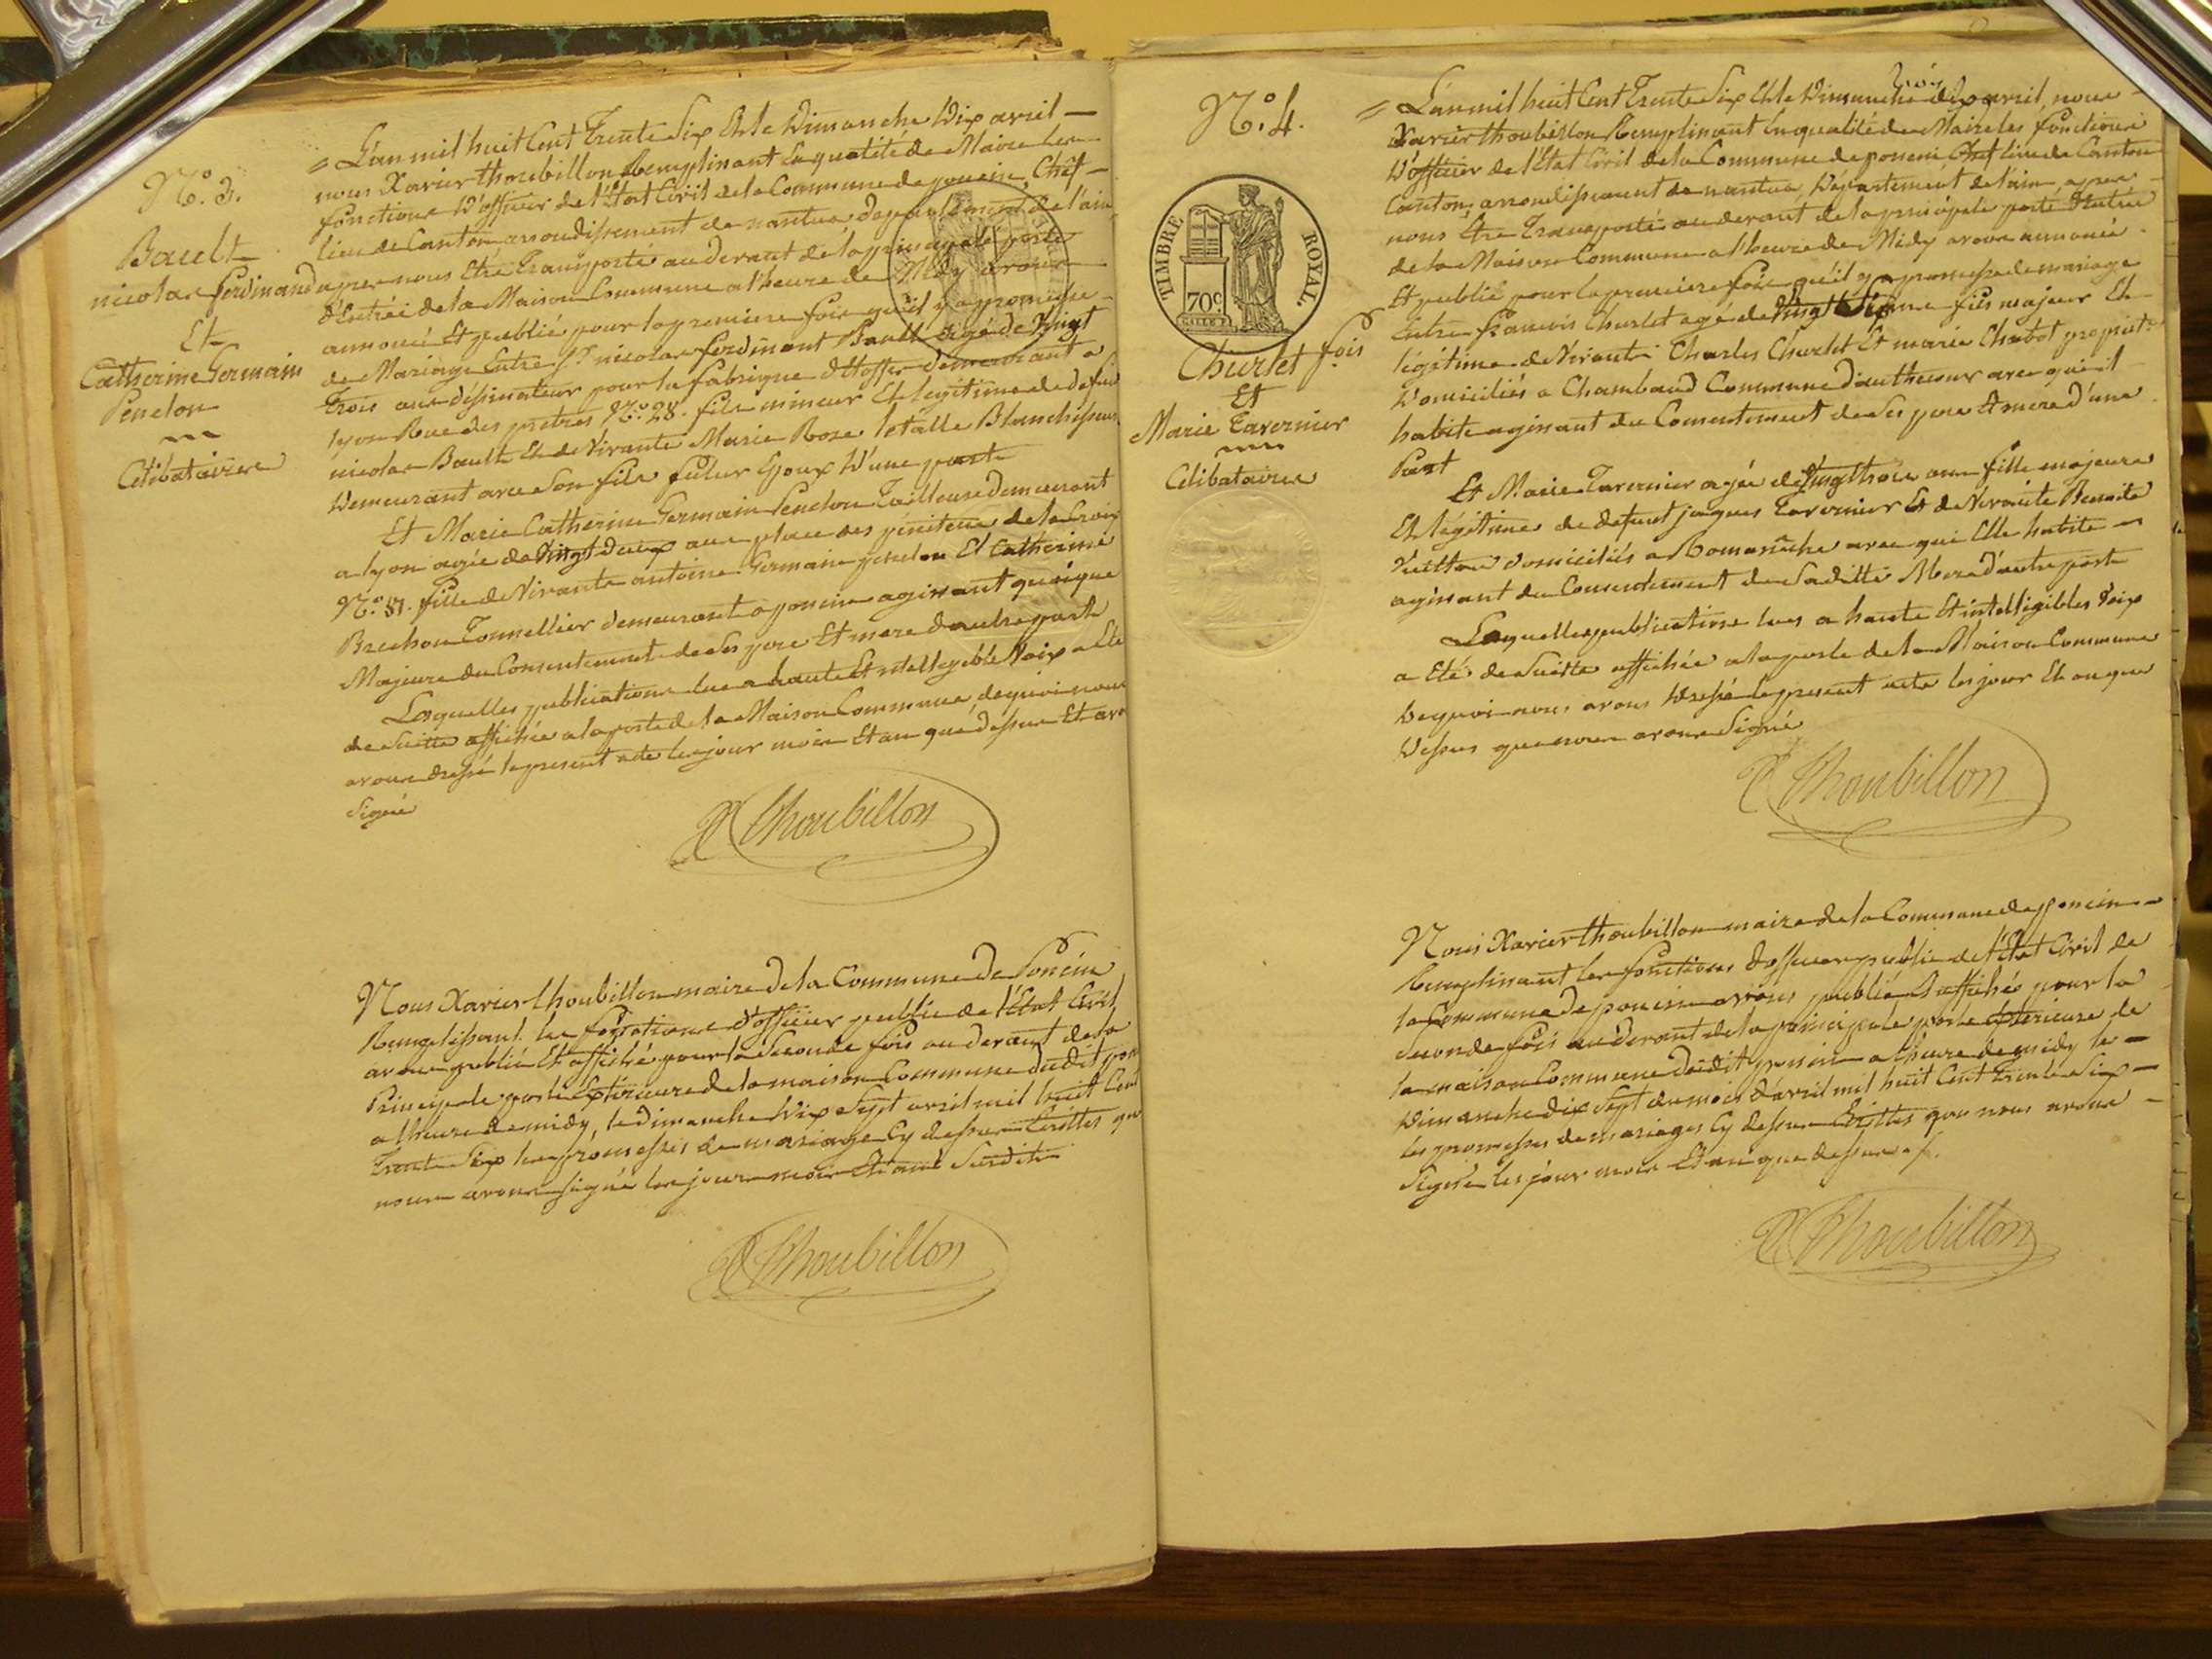 N.º 3.
Bault
nicolas ferdinand
Et
Catherine Germain
Penelon
Célibataires
= L'an mil huit Cent Trente Six Et le Dimanche Dix avril —
nous Xavier thoubillon Remplissant la qualité de Maire les
fonctions D'officier de l'Etat Civil de la Commune de poncin, Chef —
lieu de Canton arrondissement de nantua departement de l'ain
apres nous Etre Transporté au devant de la principale porte
d'Entréé de la Maison Commune a l'heure de Midy avons
annoncé Et publié pour la premiere fois qu'il y a promesse
de Mariage Entre Sr. nicolas ferdinant Bault agé de Vingt
Trois ans dessinateur pour la fabrique d'Etoffes demeurant a
lyon Rue des pretres N.º 28. fils mineur Et legitime de defunt
nicolas Bault Et de Vivante Marie Rose letalle Blanchisseuse
Demeurant avec Son fils futur Epoux D'une part
Et Marie Catherine Germain Penelon Tailleuse demeurant
a lyon agée de Vingt Deux ans place des penitens de la Croix
N.º 81. fille de Vivants antoine Germain penelon Et Catherine
Brechon Tonnellier demeurant a poncin agissant quoique
Majeure du Consentement de Ses pere Et mere d'autre part
Lesquelles publications lue a haute Et intelligible Voix a Eté
de Suitte affichée a la porte de la Maison Commune, de quoi nous
avons dressé le present acte les jour mois Et an que dessus Et avons
Signé
X Thoubillon
Nous Xavier thoubillon maire de la Commune de Poncin
Remplissant les fonctions d'officier public de l'Etat Civil
avons publié Et affiché pour la Seconde fois au devant de la
Principale porte Extérieure de la maison Commune dudit
a lheure de midy, le dimanche Dix Sept avril mil huit Cent
Trente Six les promesses de mariage Cy dessus Ecrittes que
nous avons signé les jour mois Et an Susdits
X Thoubillon
N.º 4.
TIMBRE ROYAL.
70c
Churlet f.ois
Et
Marie Tavernier
Célibataires
= L'an mil huit Cent Trente Six Et le Dimanche dix avril, nous
Xavier thoubillon Remplissant la qualité de Maire les fonctions
D'officier de l'Etat Civil de la Commune de poncin Chef lieu de Canton
Canton, arrondissement de nantua, Département de l'ain, apres
nous Etre Transporté au devant de la principale porte d'Entrée
de la Maison Commune a l'heure de Midy avons annoncé
Et publié pour la premiere fois qu'il y a promesse de mariage
Entre françois Churlet agé de Vingt Six ans fils majeur Et
légitime de Vivants Charles Churlet Et marie Chabot propriet.res
Domiciliés a Chambaud Commune d'authenour avec qui il
habite agissant du Consentement de Ses pere Et mere d'une
Part
Et Marie Tavernier agée de Vingt trois ans fille majeure
Et légitime de defunt jaques Tavernier Et de Vivante Benoite
domiciliés a Romanêche avec qui Elle habite
agissant du Consentement de Sadite Mere d'autre part
Lesquelles publications lues a haute Et intelligibles Voix
a Eté de Suitte affichée a la porte de la Maison Commune
De quoi nous avons Dressé le present acte les jour Et an que
Dessus que nous avons Signé
X Thoubillon
Nous Xavier thoubillon maire de la Commune de poncin
Remplissant les fonctions d'officier public de l'Etat Civil de
la Commune de poncin avons publié Et affiché pour la
Seconde fois au devant de la principale porte Exterieure de
la maison Commune dudit poncin a l'heure de midy le —
Dimanche dix Sept du mois d'avril mil huit Cent Trente Six —
les promesses de mariages Cy dessus Ecrittes que nous avons —
Signé les jour mois Et an que dessus ./.
X Thoubillon